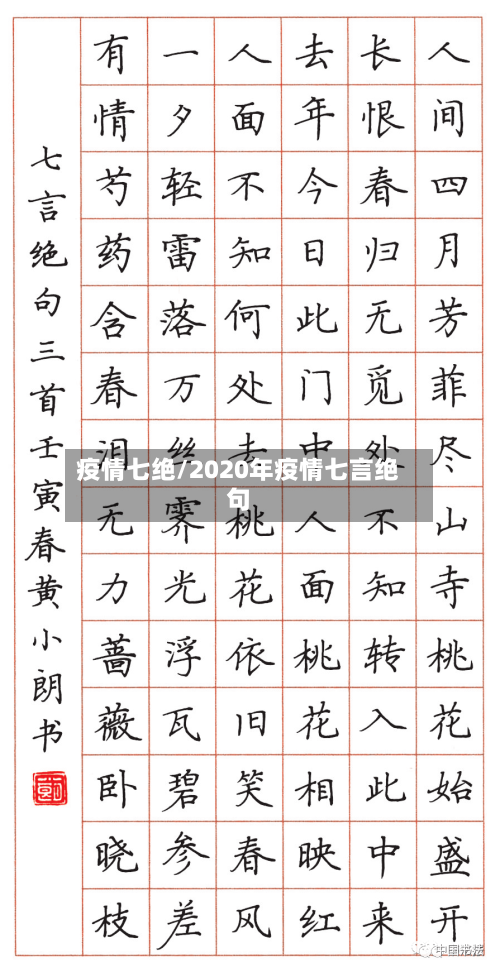 人间四月芳菲尽山寺桃花始盛开
长恨春归无觅处不知转入此中来
去年今日此门中人面桃花相映红
人面不知何处去桃花依旧笑春风
一夕轻雷落万丝霁光浮瓦碧参差
有情芍药含春泪无力蔷薇卧晓枝
七言绝句三首壬寅春黄小朗书
疫情七绝/2020年疫情七言绝
句
中国书法